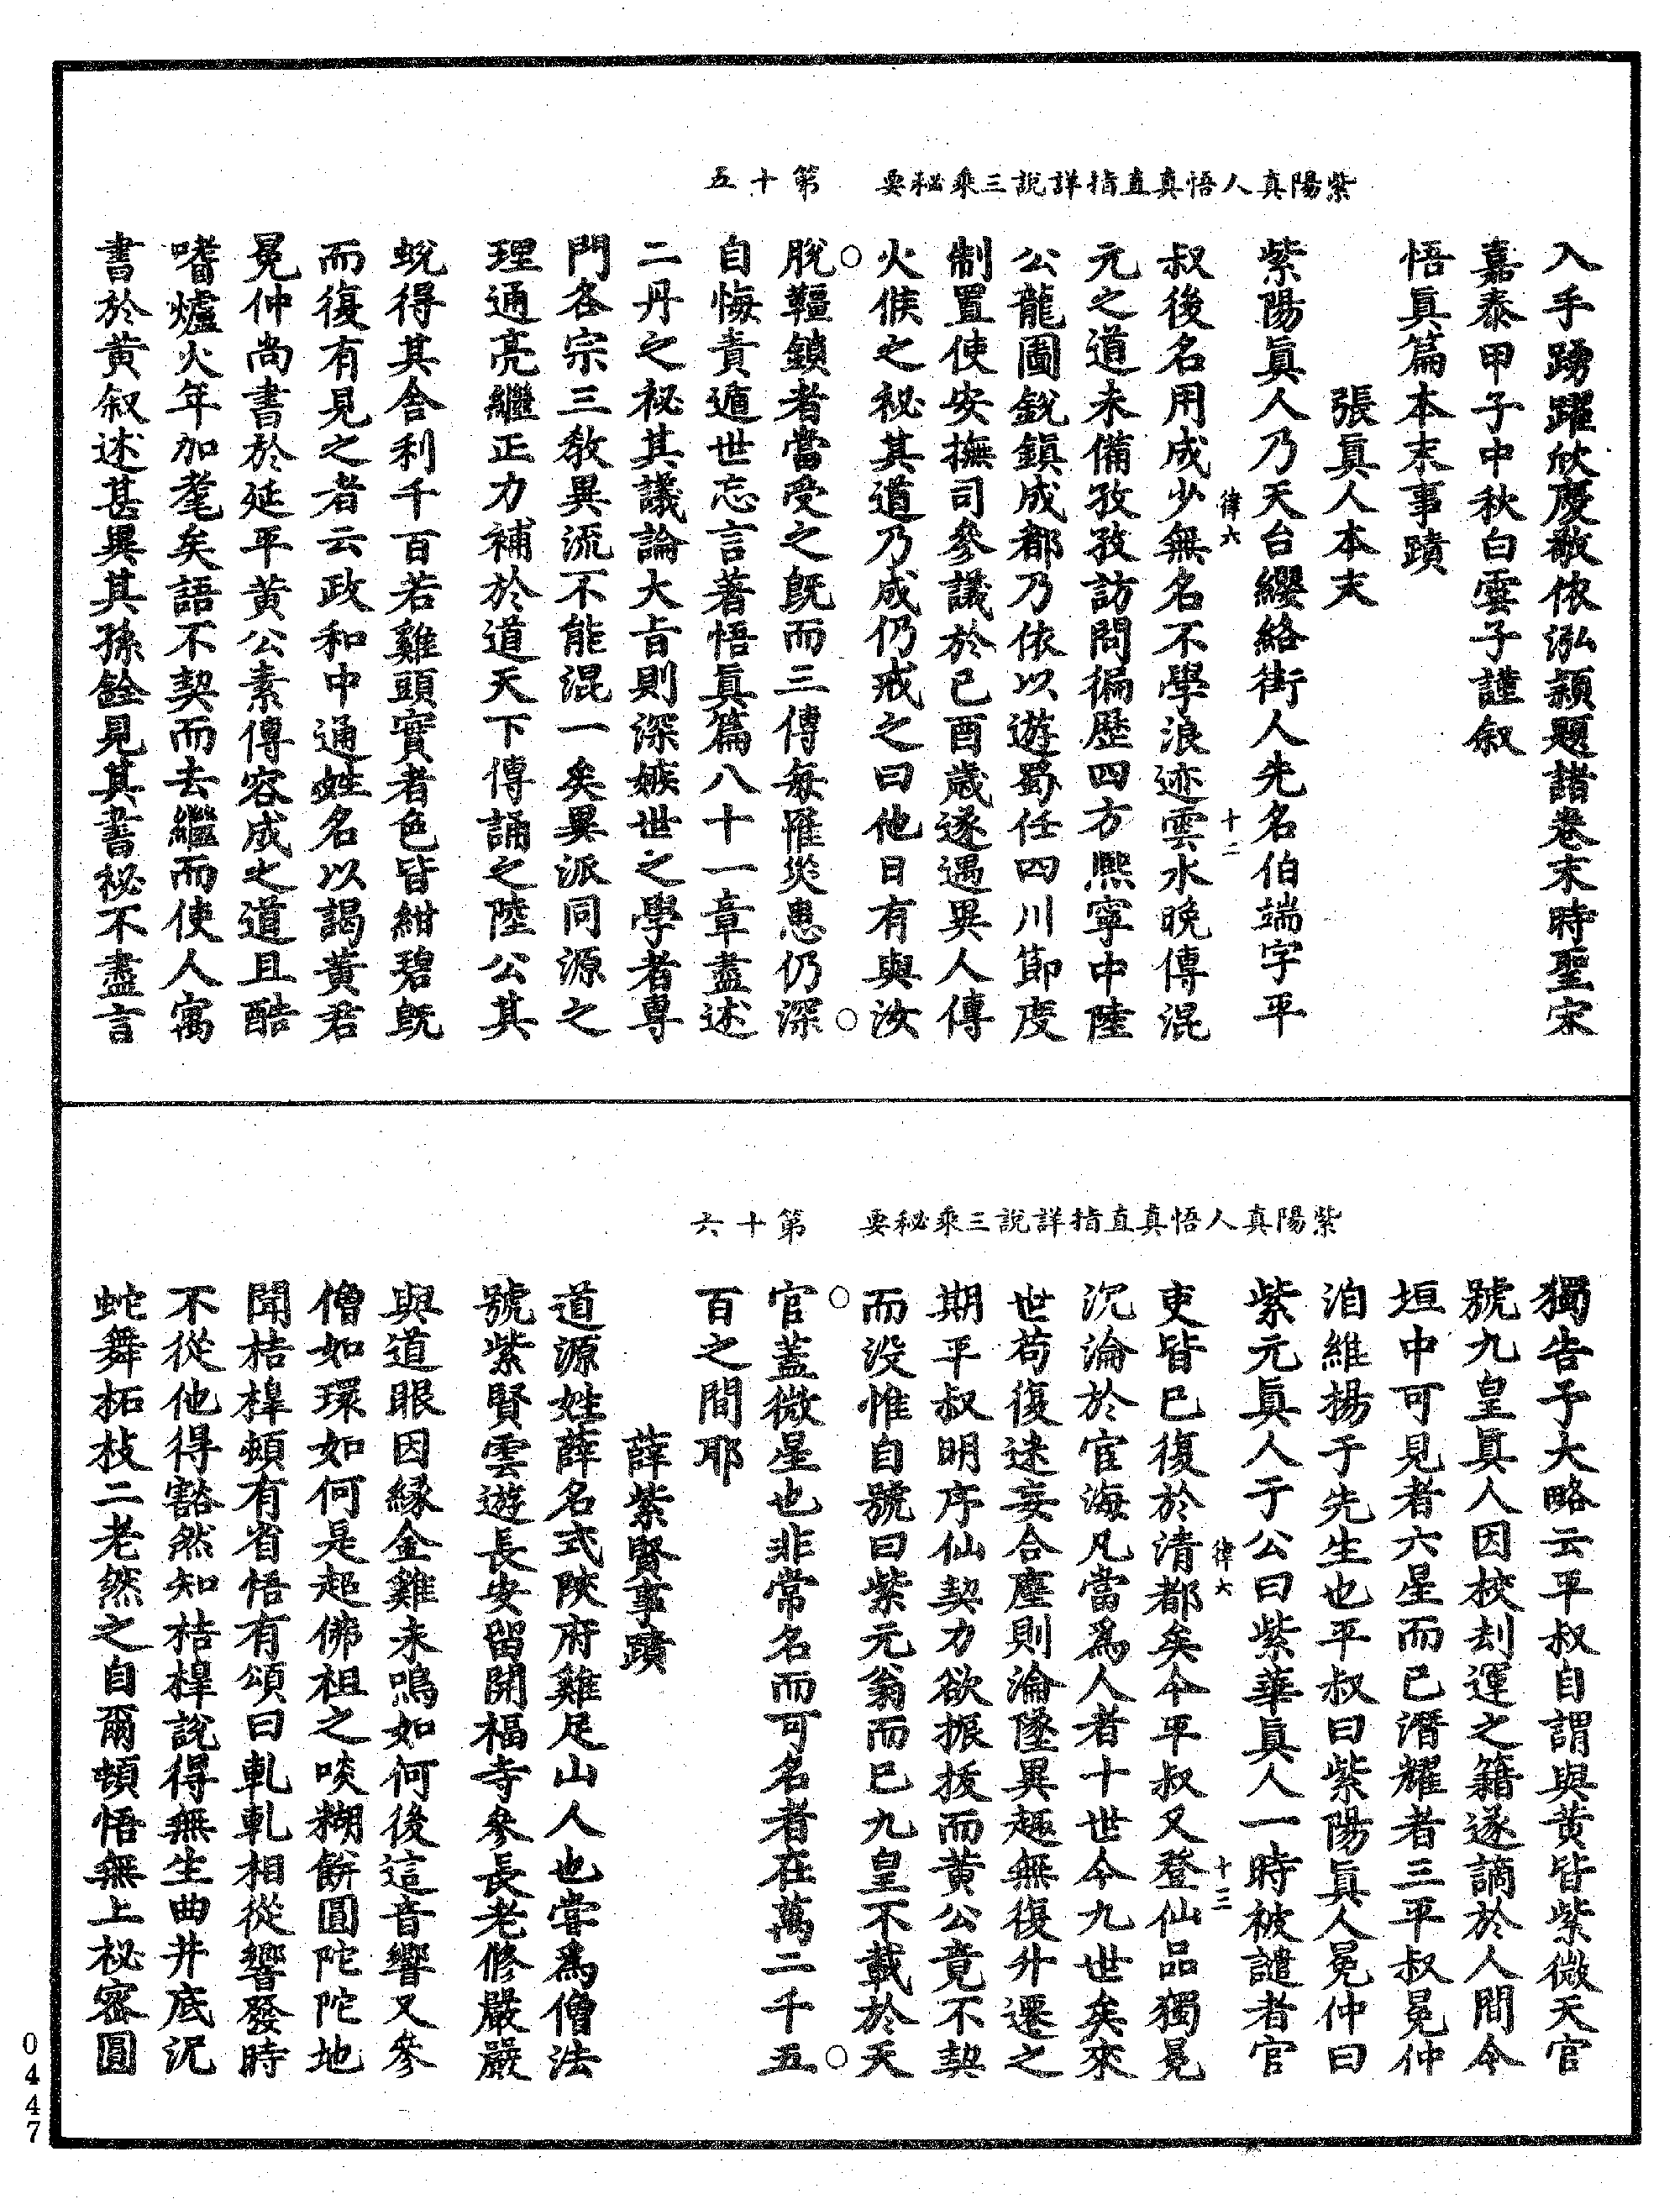 紫陽真人悟真直指詳說三乘秘要　第十五
入手踴躍欣慶敬依泓穎題諸卷末時聖宋
嘉泰甲子中秋白雲子謹叙
悟眞篇本末事蹟
張眞人本末
紫陽眞人乃天台纓絡街人先名伯端字平
律六　十二
叔後名用成少無名不學浪迹雲水晚傳混
元之道未備孜孜訪問徧歷四方熙寧中陸
公龍圖銳鎮成都乃依以遊蜀任四川節度
制置使安撫司參議於己酉歲遂遇異人傳
火候之祕其道乃成仍戒之曰他日有與汝
脫韁鎖者當受之既而三傳每罹災患仍深
自悔責遁世忘言著悟眞篇八十一章盡述
二丹之祕其議論大旨則深嫉世之學者專
門各宗三教異流不能混一矣異派同源之
理通亮繼正力補於道天下傳誦之陸公其
蛻得其舍利千百若雞頭實者色皆紺碧既
而復有見之者云政和中通姓名以謁黃君
冕仲尚書於延平黃公素傳容成之道且酷
嗜爐火年加耄矣語不契而去繼而使人寓
書於黃叙述甚異其孫銓見其書祕不盡言
紫陽真人悟真直指詳說三乘秘要　第十六
獨告予大略云平叔自謂與黃皆紫微天官
號九皇眞人因校刦運之籍遂謫於人間今
垣中可見者六星而已潛耀者三平叔冕仲
洎維揚于先生也平叔曰紫陽眞人冕仲曰
紫元眞人于公曰紫華眞人一時被譴者官
律六　十三
吏皆已復於清都矣今平叔又登仙品獨冕
沉淪於宦海凡當爲人者十世今九世矣來
世苟復迷妄合塵則淪墜異趣無復升遷之
期平叔明序仙契力欲振拔而黃公竟不契
而沒惟自號曰紫元翁而已九皇不載於天
官蓋微星也非常名而可名者在萬二千五
百之間耶
薛紫賢事蹟
道源姓薛名式陝府雞足山人也嘗爲僧法
號紫賢雲遊長安留開福寺參長老修嚴嚴
與道眼因緣金雞未鳴如何後這音響又參
僧如環如何是超佛祖之啖糊餅圓陀陀地
聞桔槔頓有省悟有頌曰軋軋相從響發時
不從他得豁然知桔槔說得無生曲井底泥
蛇舞柘枝二老然之自爾頓悟無上祕密圓
0447